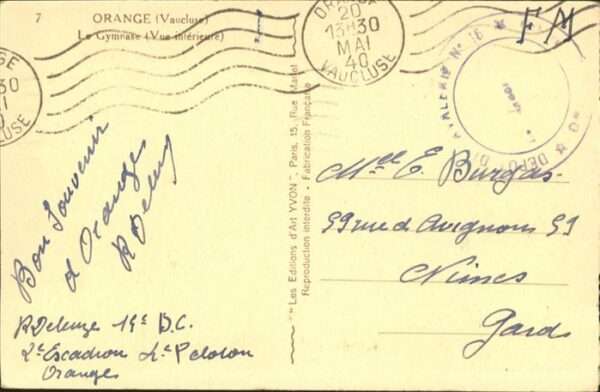 7 ORANGE (Vaucluse)
Le Gymnase (Vue intérieure)
ORANGE
20
13H30
MAI
40
VAUCLUSE
F M
DEPOT
N° 16
Bon Souvenir
d'Orange
R Deleuze
R Deleuze 14e D.C.
2e Escadron 4e Peloton
Orange
"Les Editions d'Art YVON", Paris, 15, Rue Martel
Reproduction interdite - Fabrication Française
Mel E. Burgas
59 rue d Avignon 59
Nimes
Gard